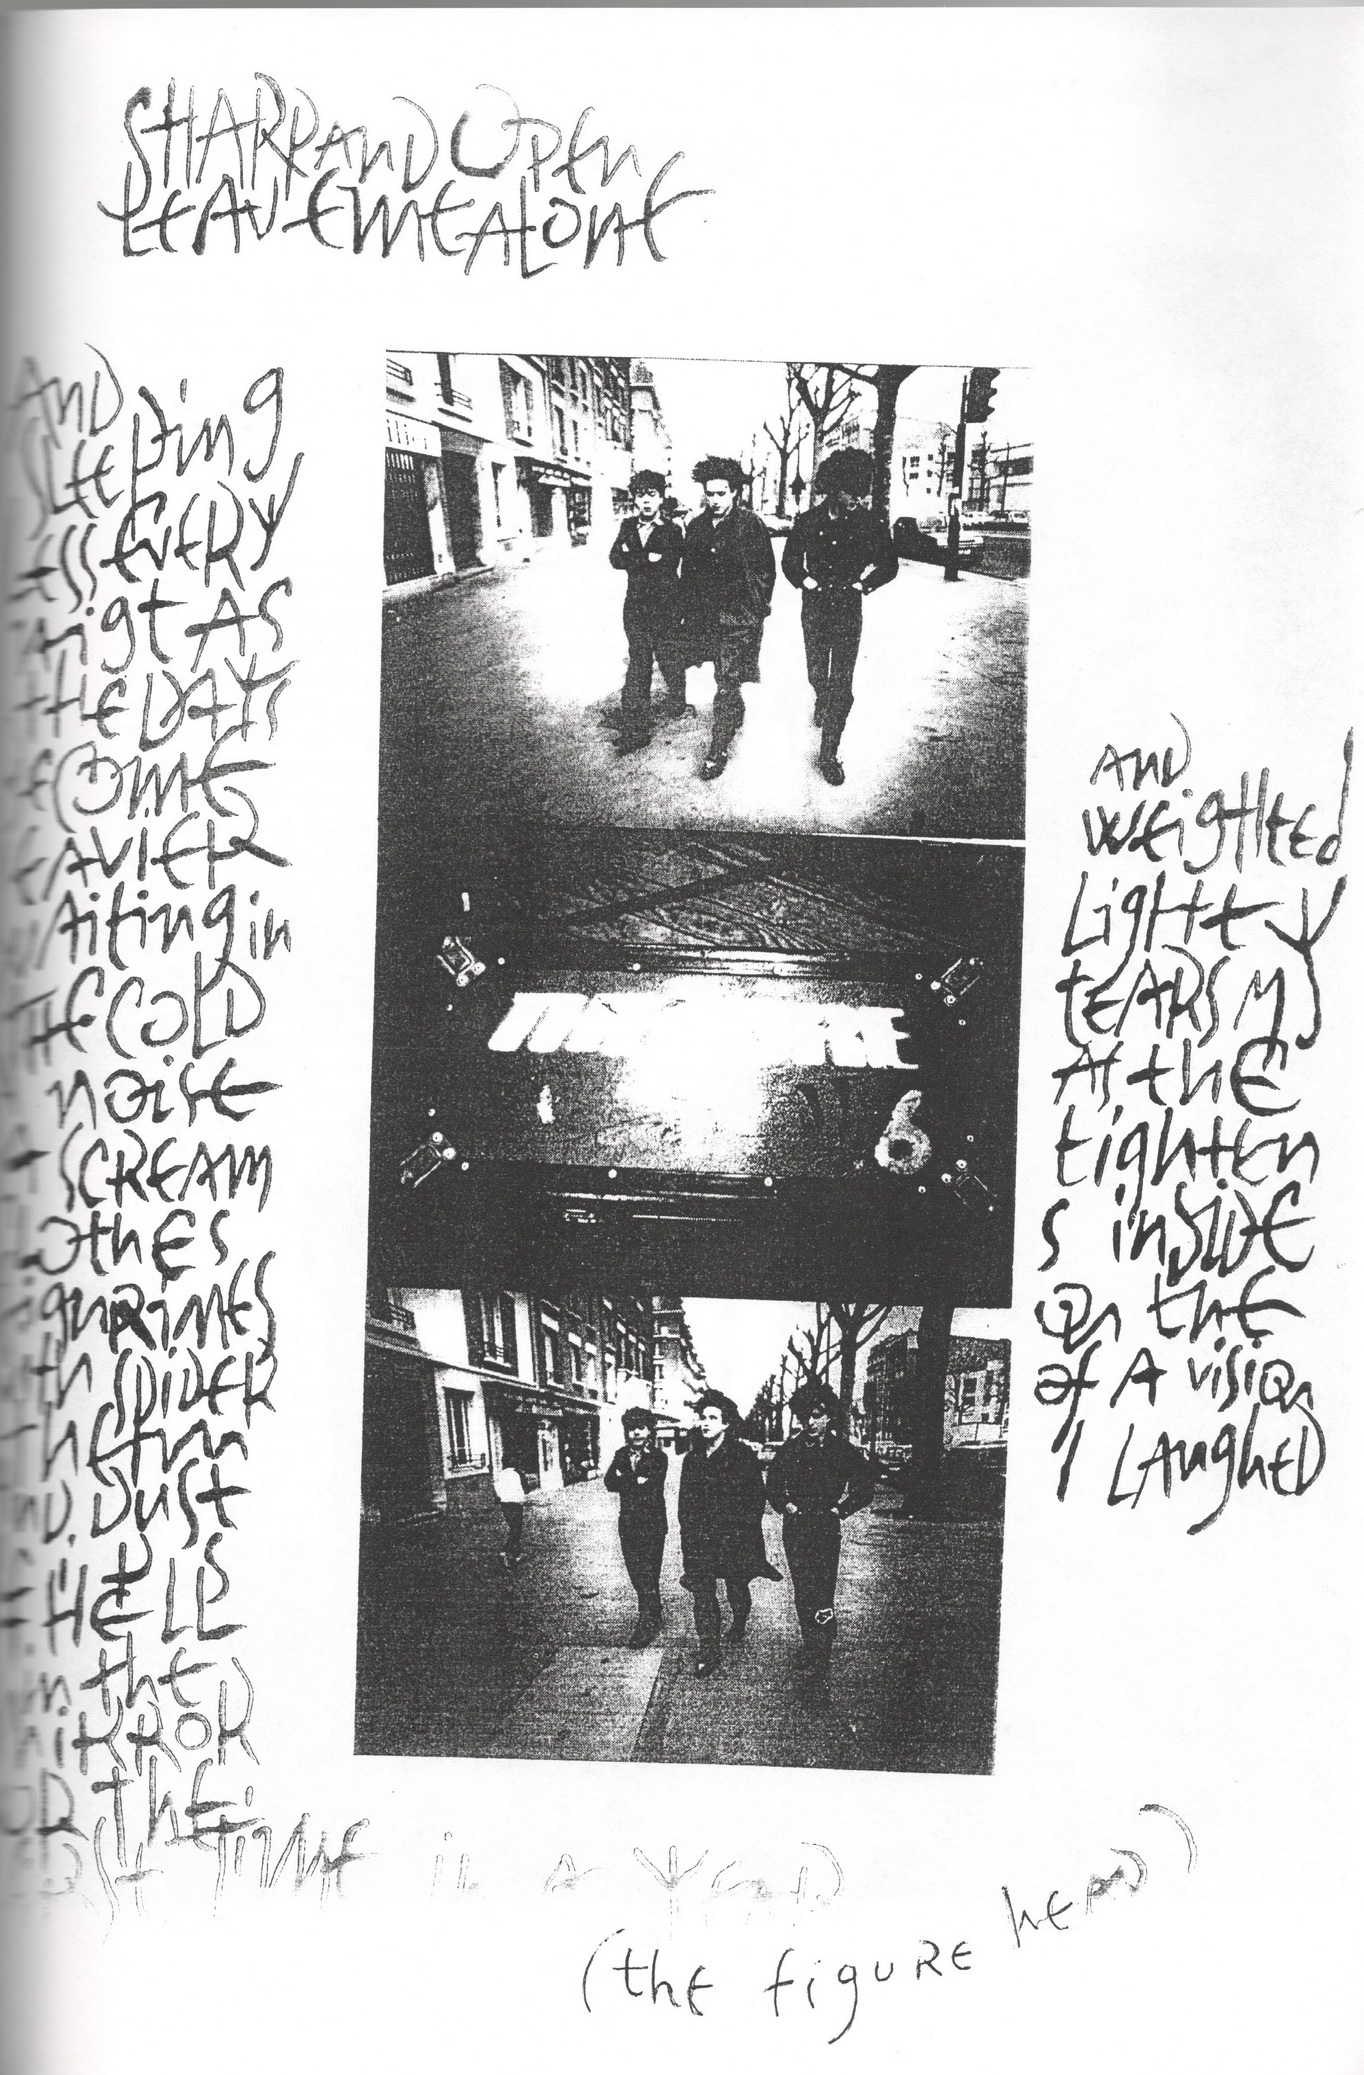 SHARP AND OPEN
LEAVE ME ALONE
AND
SLEEping
LESS EVERY
nigt AS
THE DAYS
COME
EAVIER
WAiting in
THE COLD
noise
SCREAM
OthES
SPIDER
Dust
HELLS
in the
MIRROR
OR thE
RST TIME in A YEAR
AND
WEigHtED
LigHt Y
tEARS M
At thE
tightEn
S inSIDE
On thE
Of A vision
I LAughED
6
(thE figuRE hEAD)